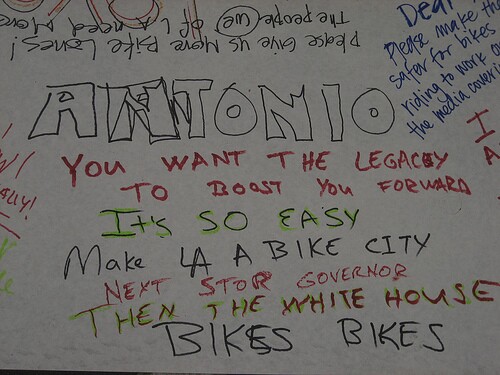 Please Give us More Bike Lanes!
The people (we) of LA need More
Dear
Please make th
safer for bikes
riding to work o
the media coveri
ANTONIO
I
YOU WANT THE LEGACY
TO BOOST YOU FORWARD
IT'S SO EASY
Make LA A BIKE CITY
NEXT STOP GOVERNOR
THEN THE WHITE HOUSE
BIKES BIKES